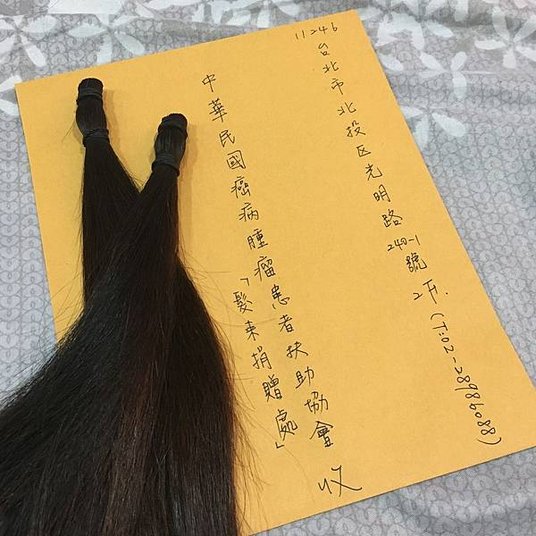 11246
台北市北投区光明路240-1號2F.(T:02-28986088)
中華民國癌病腫瘤患者扶助協會 收
「髮束捐贈處」